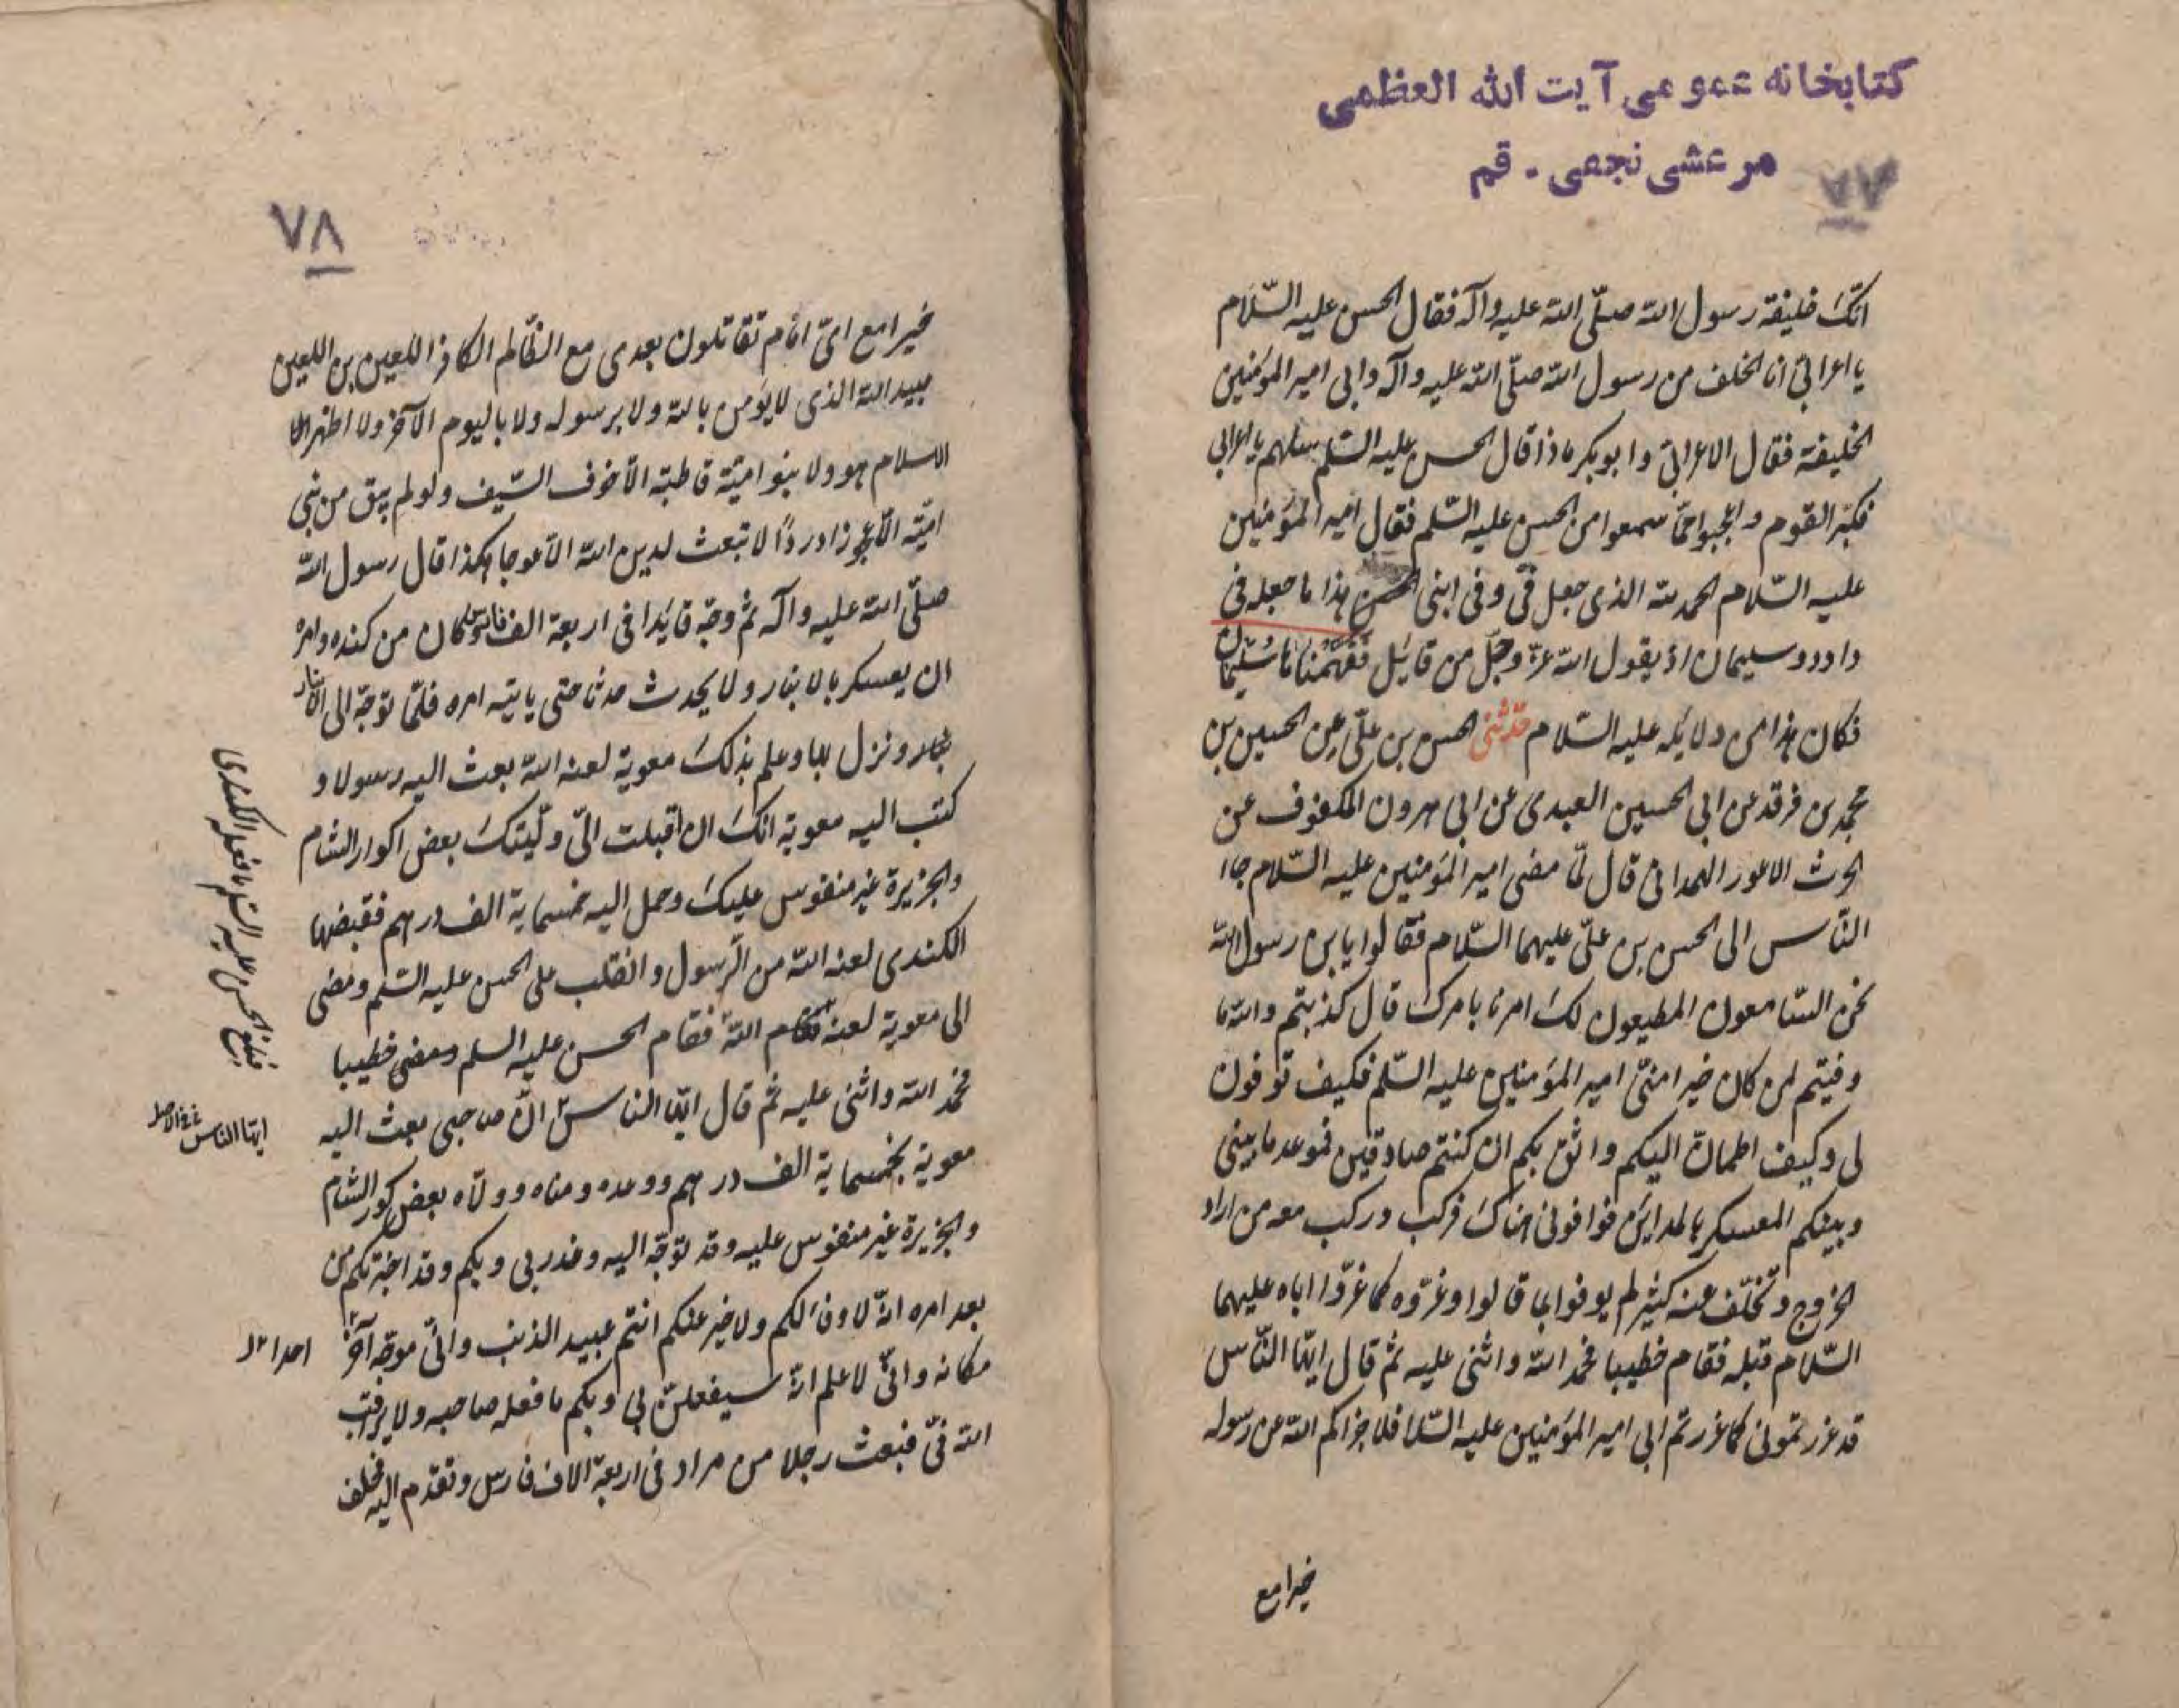 كتابخانه عمومى آيت الله العظمى
مرعشى نجفى - قم
٧٧
انّك خليفة رسول الله صلّى الله عليه وآله فقال الحسن عليه السّلام
يا اعرابىّ انا الخلف من رسول الله صلّى الله عليه وآله وابى امير المؤمنين
الخليفة فقال الاعرابىّ وابو بكر ماذا قال الحسن عليه السّلم سلهم يا اعرابى
فكبّر القوم وعجبوا ممّا سمعوا من الحسن عليه السّلم فقال امير المؤمنين
عليه السّلام الحمد لله الذى جعل فىّ وفى ابنى الحسن هذا ما جعله فى
داود وسليمان اذ يقول الله عزّ وجلّ من قايل فَفَهَّمْناها سُلَيْمان
فكان هذا من دلايله عليه السّلام حدّثنى الحسن بن علىّ عن الحسين بن
محمد بن فرقد عن ابى الحسين العبدى عن ابى هرون المكفوف عن
الحرث الاعور الهمدانى قال لمّا مضى امير المؤمنين عليه السّلام جاا
النّاس الى الحسن بن علىّ عليهما السّلام فقالوا يا بن رسول الله
نحن السّامعون المطيعون لك امرنا بامرك قال كذبتم والله ما
وفيتم لمن كان خيرا منّى امير المؤمنين عليه السّلم فكيف توفون
لى وكيف اطمانّ اليكم واثق بكم ان كنتم صادقين فموعد ما بينى
وبينكم المعسكر بالمداين فوافونى هناك فركب وركب معه من اراد
الخروج وتخلّف عنه كثير لم يوفوا بما قالوا وغرّوه كما غرّوا اباه عليهما
السّلام قبله فقام خطيبا فحمد الله واثنى عليه ثم قال ايّها النّاس
قد غررتمونى كما غررتم ابى امير المؤمنين عليه السّلا فلا جزاكم الله عن رسوله
خيرا مع
٧٨
خيرا مع اىّ امام تقاتلون بعدى مع الظّالم الكافر اللعين بن اللعين
عبيد الله الذى لا يؤمن بالله ولا برسوله ولا باليوم الآخر ولا اظهر
الاسلام هو ولا بنو اميّة قاطبة الّا خوف السّيف ولو لم يبق من بنى
اميّة الّا عجوز ادردًا لا تبعث لدين الله الّا عوجا هكذا قال رسول الله
صلّى الله عليه وآله ثم وجّه قايدا فى اربعة الف كان من كنده وامره
ان يعسكر بالانبار ولا يحدث حدثا حتى ياتيه امره فلمّا توجّه الى الانبار
ونزل بها وعلم بذلك معوية لعنه الله بعث اليه رسولا و
كتب اليه معوية انّك ان اقبلت الىّ ولّيتك بعض اكوار الشام
والجزيرة غير منفوس عليك وحمل اليه خمسماية الف درهم فقبضها
الكندى لعنه الله من الرّسول وانقلب على الحسن عليه السّلم ومضى
الى معوية لعنه الله فقام الحسن عليه السلم ومضى خطيبا
فحمد الله واثنى عليه ثم قال ايّها الناس انّ صاحبى بعث اليه
معوية بخمسماية الف درهم ووعده ومناه وولّاه بعض كور الشام
والجزيرة غير منفوس عليه وقد توجّه اليه وغدر بى وبكم وقد اخبرتكم من
بعد امره انّه لا وفا لكم ولا خير عنكم انتم عبيد الذنب وانّى موجّه آخر
مكانه وانّى لاعلم انّه سيفعلنّ بى وبكم ما فعله صاحبه ولا يراقب
الله فىّ فبعث رجلا من مراد فى اربعة الاف فارس وتقدّم اليه
فبلغ الحسن عليه السّلم ما فعله الكندى
ايّها الناس